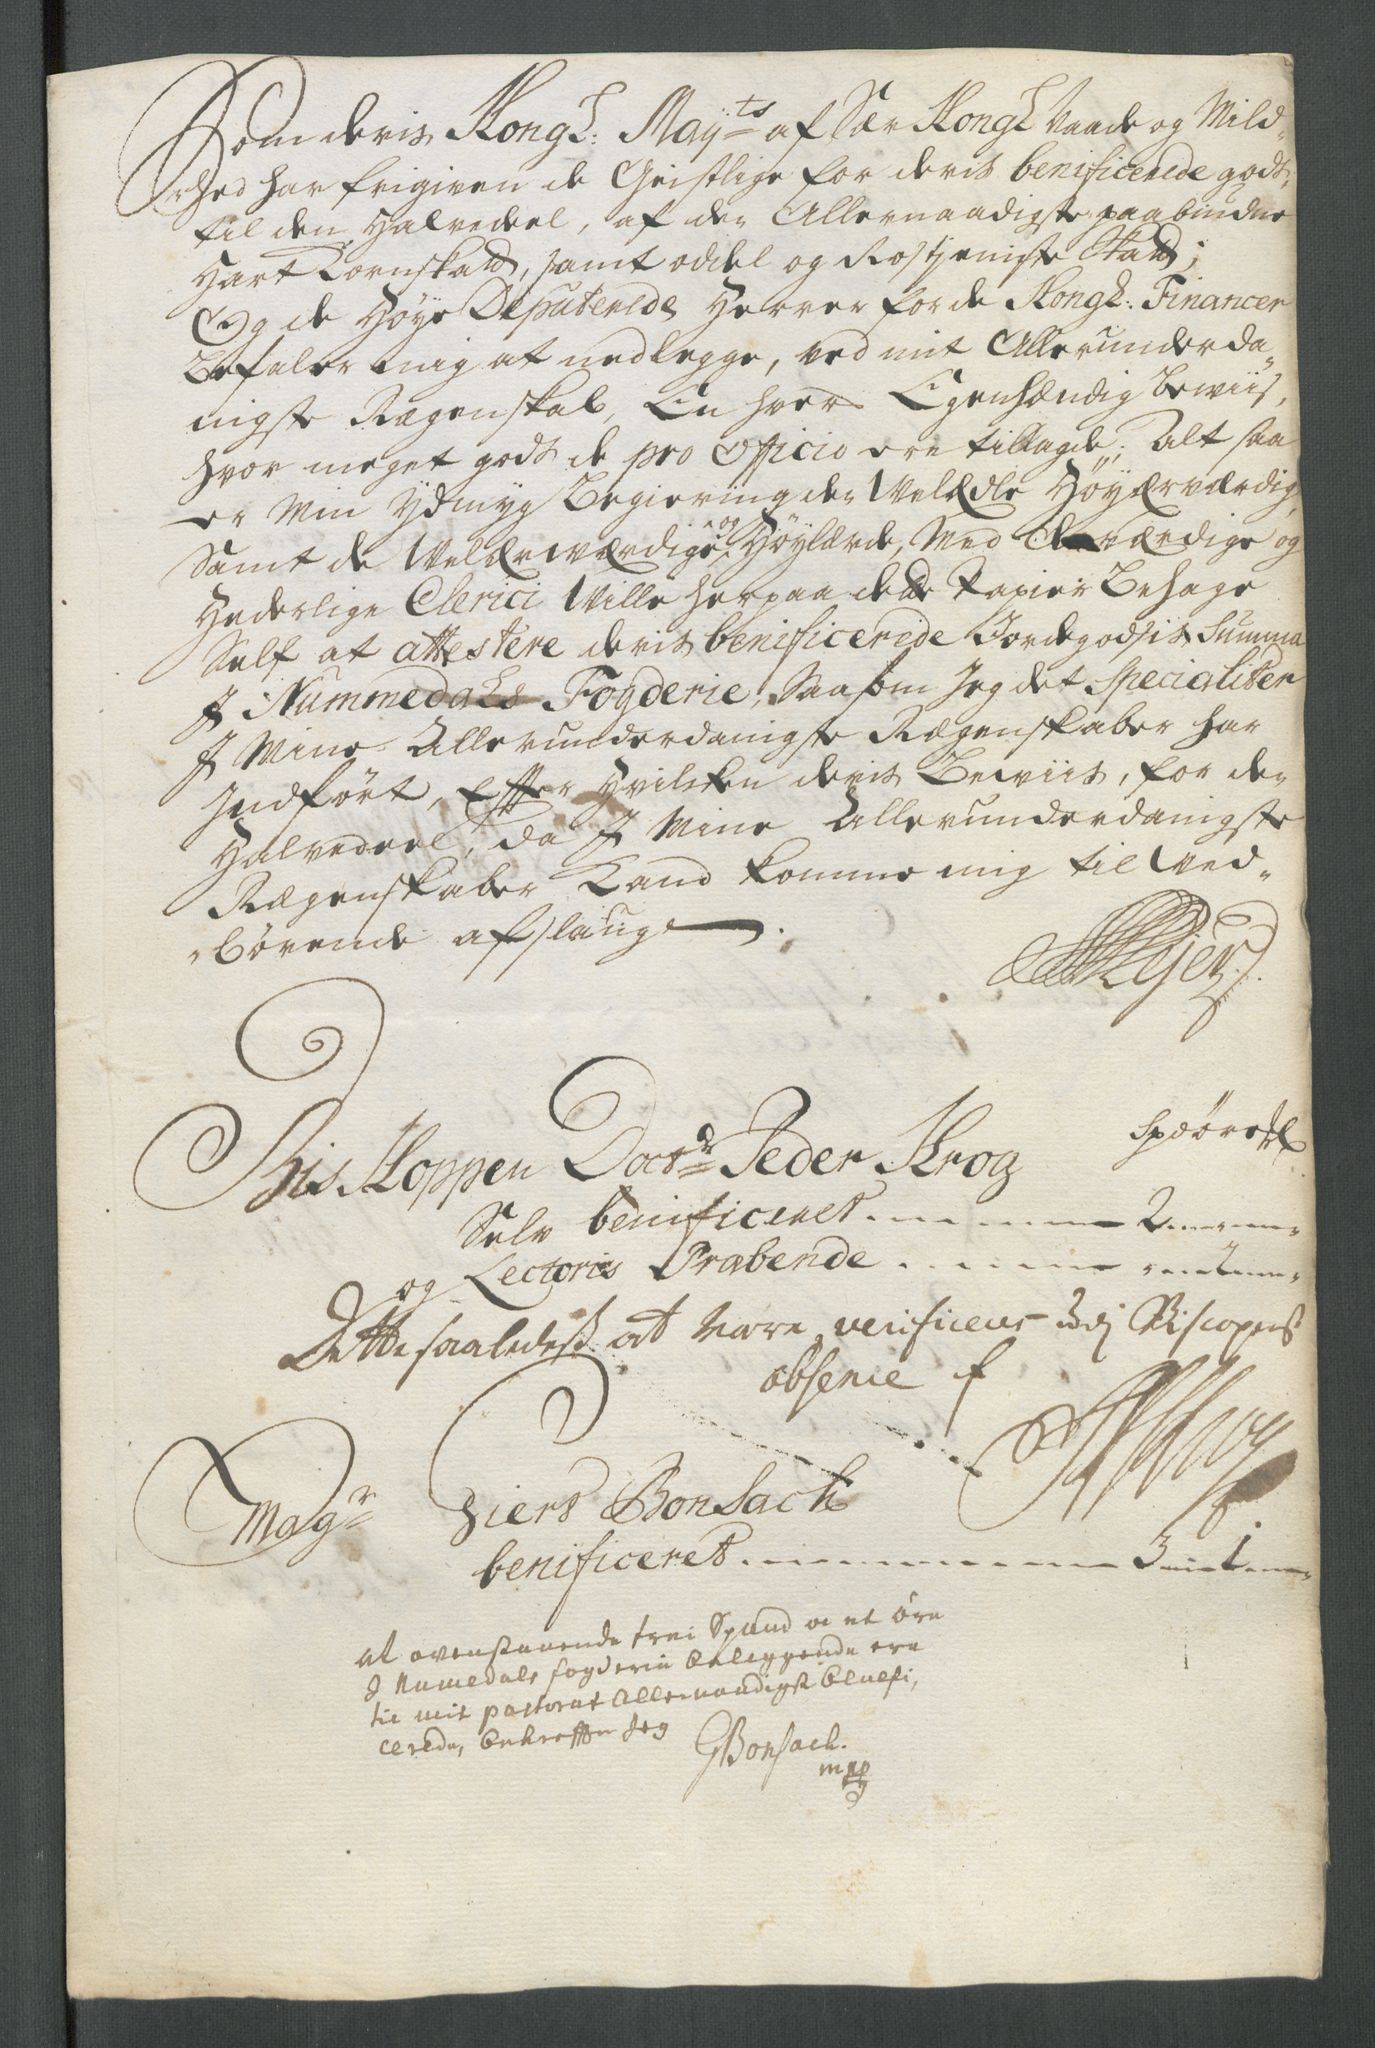 Som deris Kongl: Mayts af Sær Kongl Naade og Mild-
-hed har frigiven de Geistlige for deris benificerede gods
til den Halvedeel, af den Allernaadigste paabudne
Hart Kornskatt, samt oddel og Rostieniste Skatt;
Og de Høye Deputerede Herrer for de Kongl: Financer
Befaler mig at nedlegge, ved mit Allerunderda-
nigste Regenskab, En hvers Egenhændig Beviis,
hvor meget gods de pro Officio ere tillagde; Alt saa
er Min Ydmyg Begiering den Velædle Høyærværdig,
Samt de Velærværdige og Høylærde, Med Ærværdige og
Hæderlige Clerici Ville herpaa dette Papier Behage
Self at attestere deris benificerede Jordegodsis Summa
J Nummedals Fogderie, Saasom Jeg det Specialiter
J Mine Allerunderdanigste Regenskaber har
Indført, Efter Hvilcken deris Beviis, for den
Halvedeel, da J Mine Allerunderdanigste
Regenskaber Kand komme mig til Ved-
-børende afslaug.
Spd øre
Bis Koppen Doctr Peder Krog
Selv benificeret 2
og Lectoris Præbende
Dette saaledeß at være verificeris udj Biscopens
absence
Magr Giert Bonsach
benificeret 3 1
at ovenstaaende trei Spand oc et øre
J Numedals fogderie beliggende ere
til mit pastorat Allernaadigst benefi,
cerede, bekreffter Jeg
GBonsach.
mpp